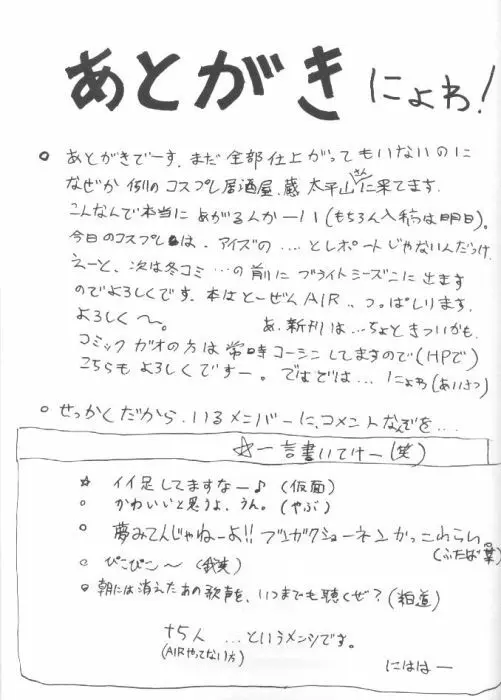 あとがき にょわ!
○ あとがきでーす。まだ全部仕上がってもいないのに
なぜか例のコスプレ居酒屋、蔵太平山さんに来てます。
こんなんで本当にあがるんかーい(もちろん入稿は明日)。
今日のコスプレは、アイズの‥‥とレポートじゃないんだっけ。
えーと、次は冬コミ…の前にブライトシーズンに出ます
のでよろしくです。本はとーぜんAIR。つっぱしります。
よろしく〜。 あ、新刊は…ちょときついかも。
コミックガオの方は常時コーシンしてますので(HPで)
こちらもよろしくですー。ではでは… にょわ(あいさつ)
○ せっかくだから、いるメンバーに、コメントなんぞを‥‥
☆一言書いてけー(笑)
☆ イイ足してますなー♪ (仮面)
○ かわいいと思うよ、うん。(やぶ)
○ 夢みてんじゃねーよ!!
(ふたば葉)
○ ぴこぴこ〜
○ 朝には消えたあの歌声を、いつまでも聴くぜ?
+5人 …というメンツです。
(AIRやってない方)
にははー